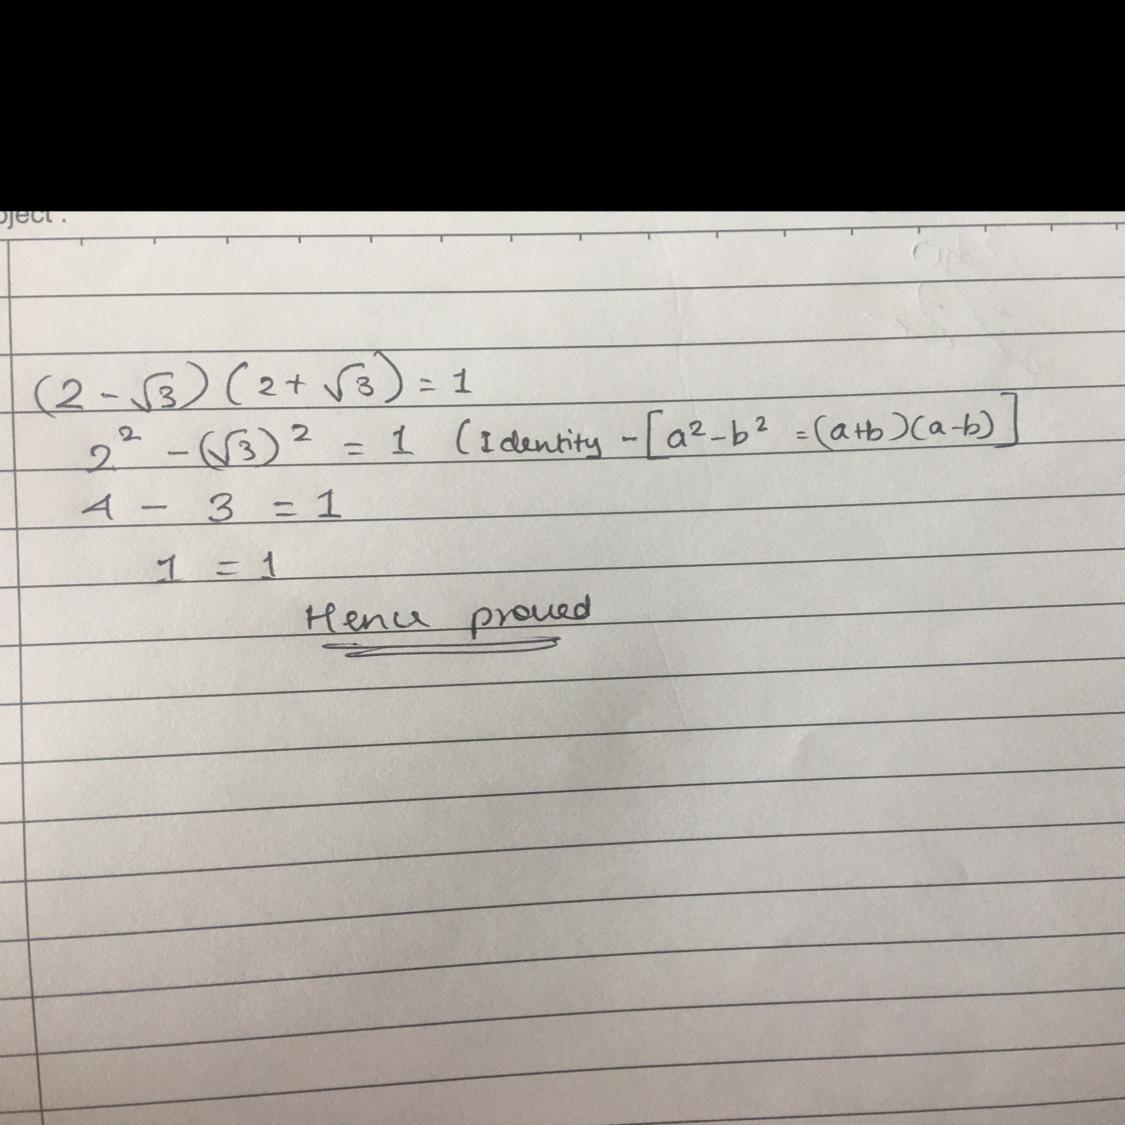 oject :
(2 - √3) (2 + √3) = 1
2² - (√3)² = 1 (Identity - [a² - b² = (a+b)(a-b)]
4 - 3 = 1
1 = 1
Hence proved